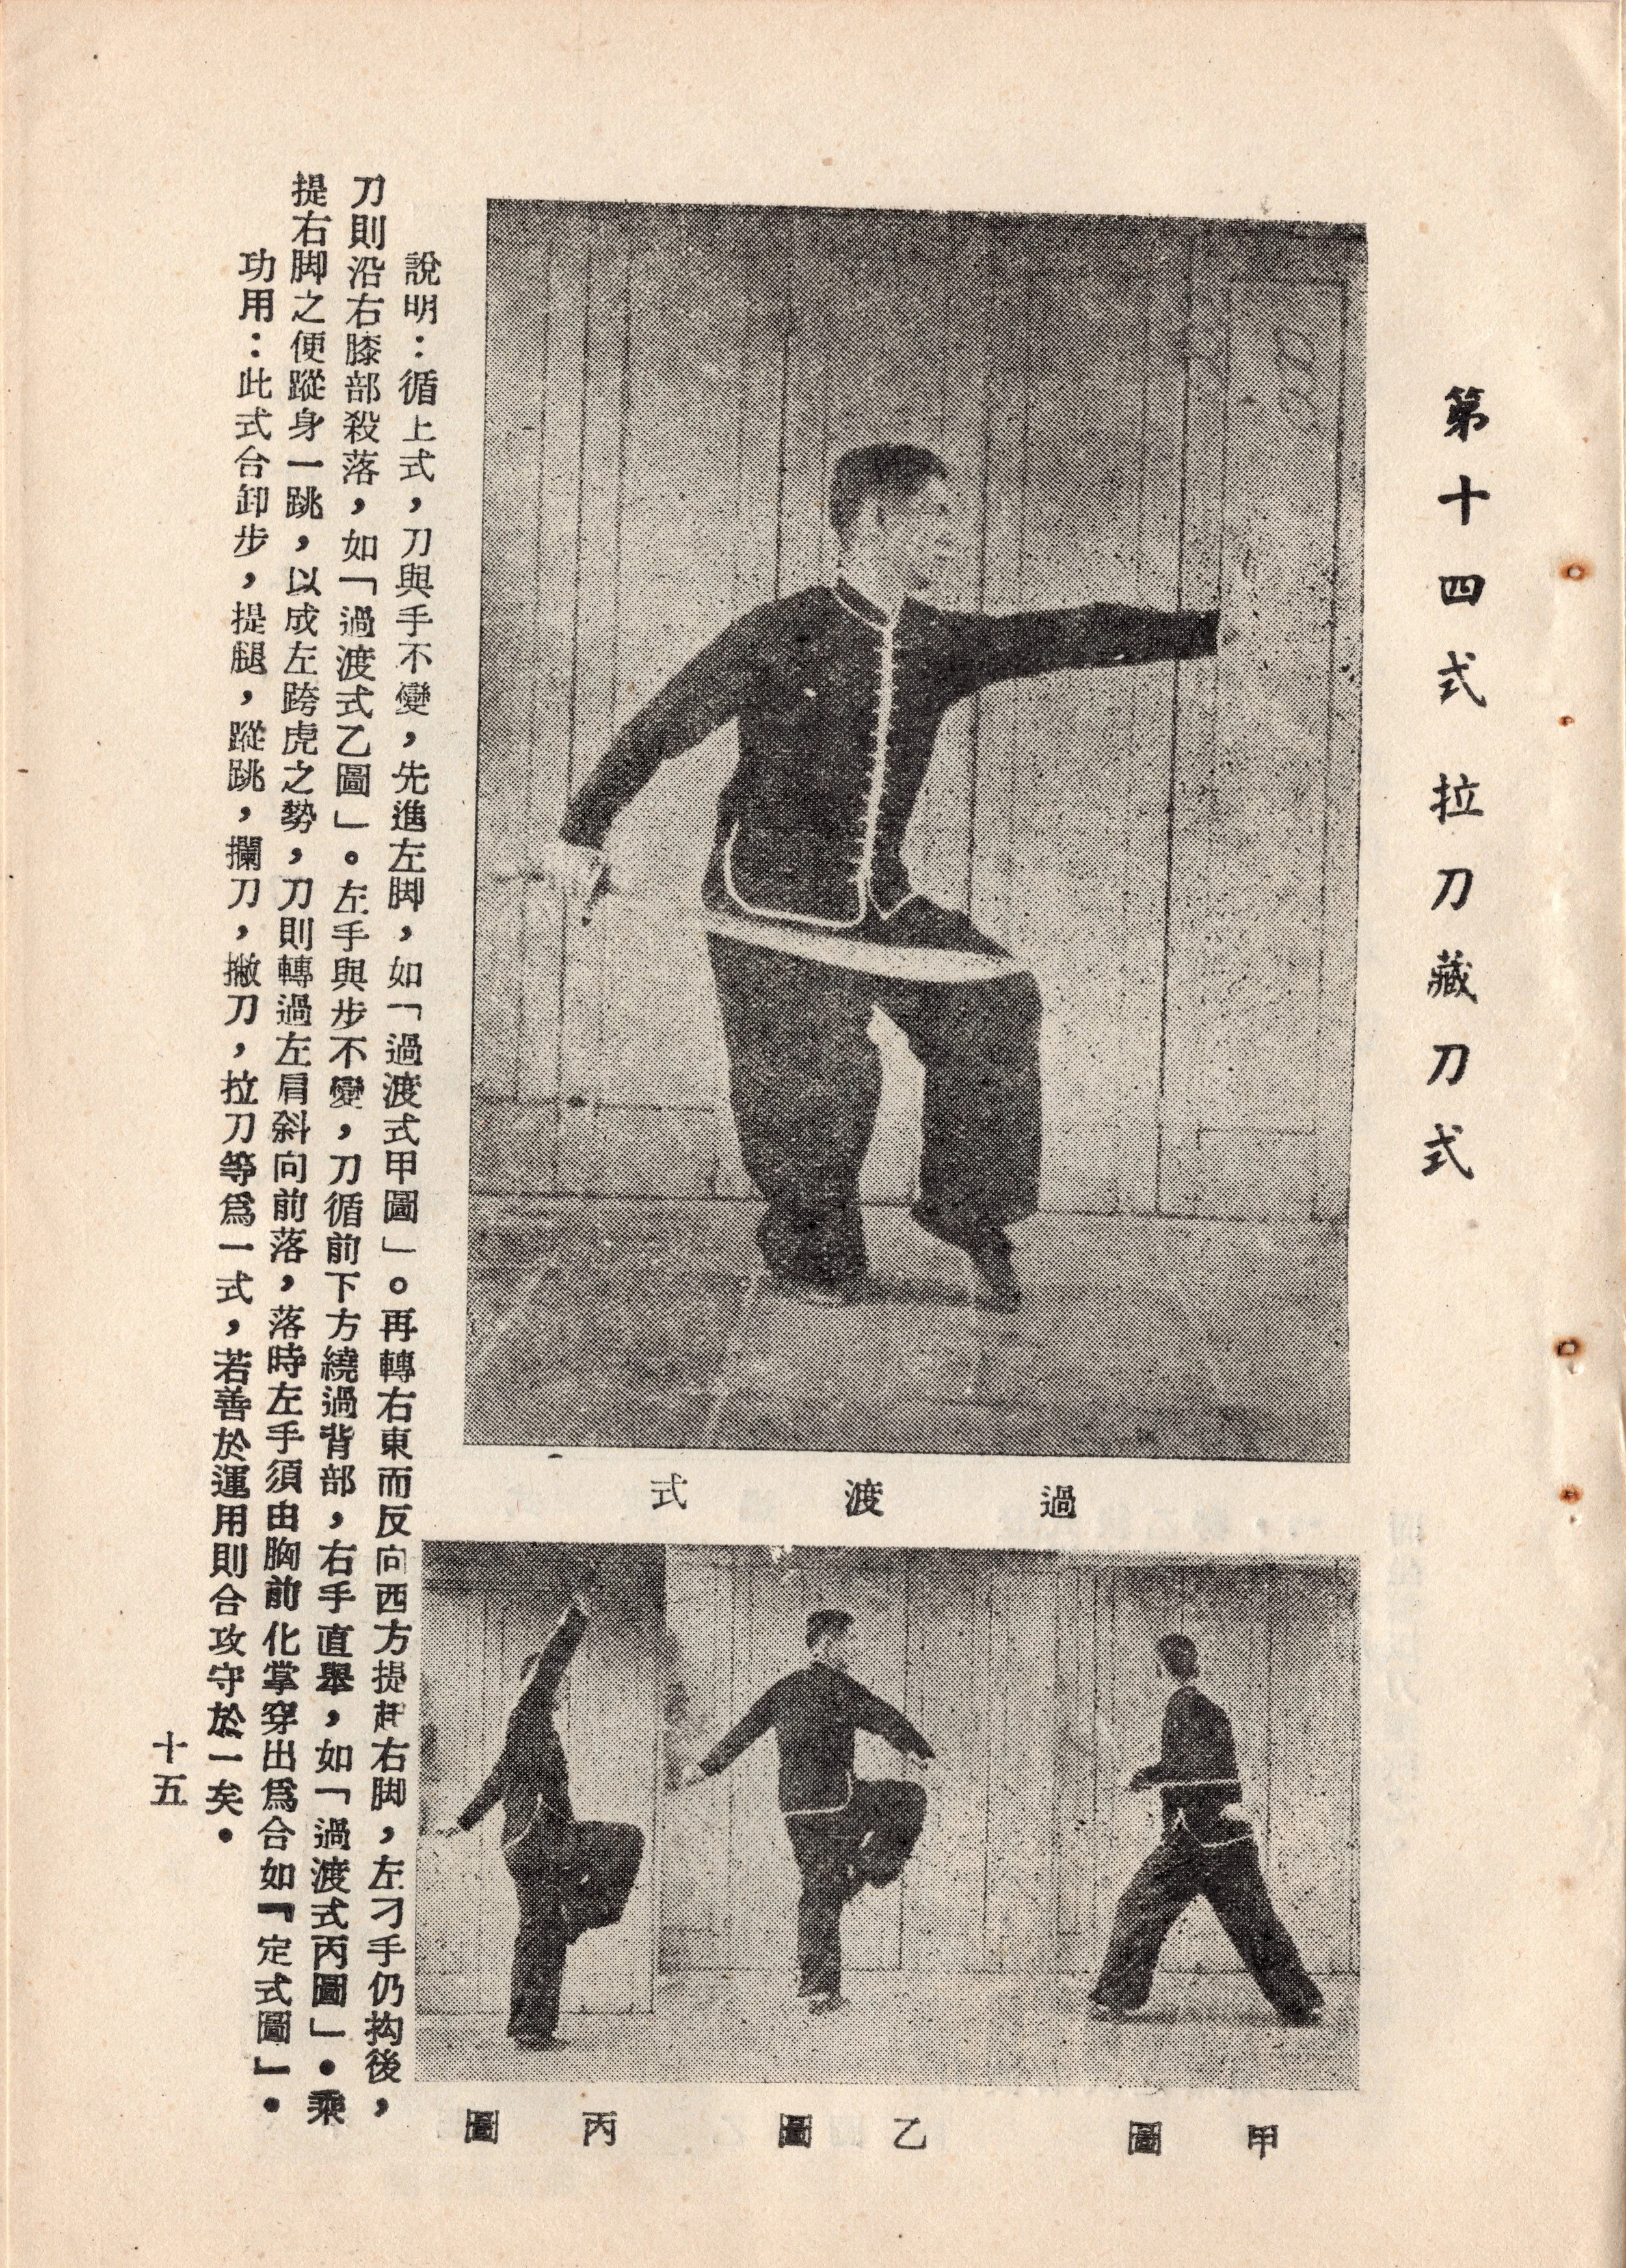 第十四式 拉刀藏刀式
過渡式
甲圖 乙圖 丙圖
說明：循上式，刀與手不變，先進左脚，如「過渡式甲圖」。再轉右東而反向西方提起右脚，左刁手仍抅後，
刀則沿右膝部殺落，如「過渡式乙圖」。左手與步不變，刀循前下方繞過背部，右手直舉，如「過渡式丙圖」．乘
提右脚之便蹤身一跳，以成左跨虎之勢，刀則轉過左肩斜向前落，落時左手須由胸前化掌穿出爲合如『定式圖』．
功用：此式合卸步，提腿，蹤跳，攔刀，撇刀，拉刀等爲一式，若善於運用則合攻守於一矣．
十五